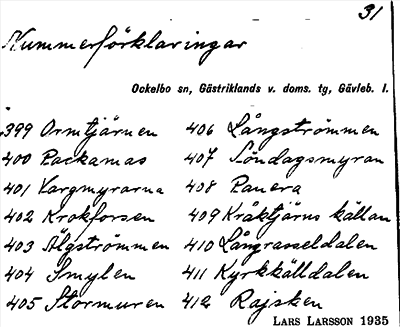 31
Nummerförklaringar
Ockelbo sn, Gästriklands v. doms. tg, Gävleb. l.
399 Ormtjärnen
400 Packamas
401 Vargmyrarna
402 Krokforsen
403 Älgströmmen
404 Smylen
405 Stormuren
406 Långströmmen
407 Söndagsmyran
408 Panera
409 Kråktjärns källan
410 Långrasseldalen
411 Kyrkkälldalen
412 Rajsken
LARS LARSSON 1935